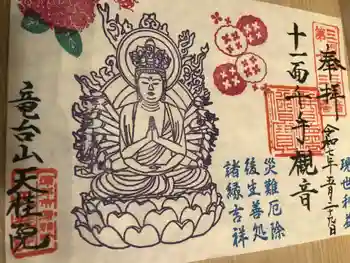 奉拝
令和七年五月二十九日
第三
十一面千手観音
現世利益
災難厄除
後生善処
諸縁吉祥
竜台山
天桂院